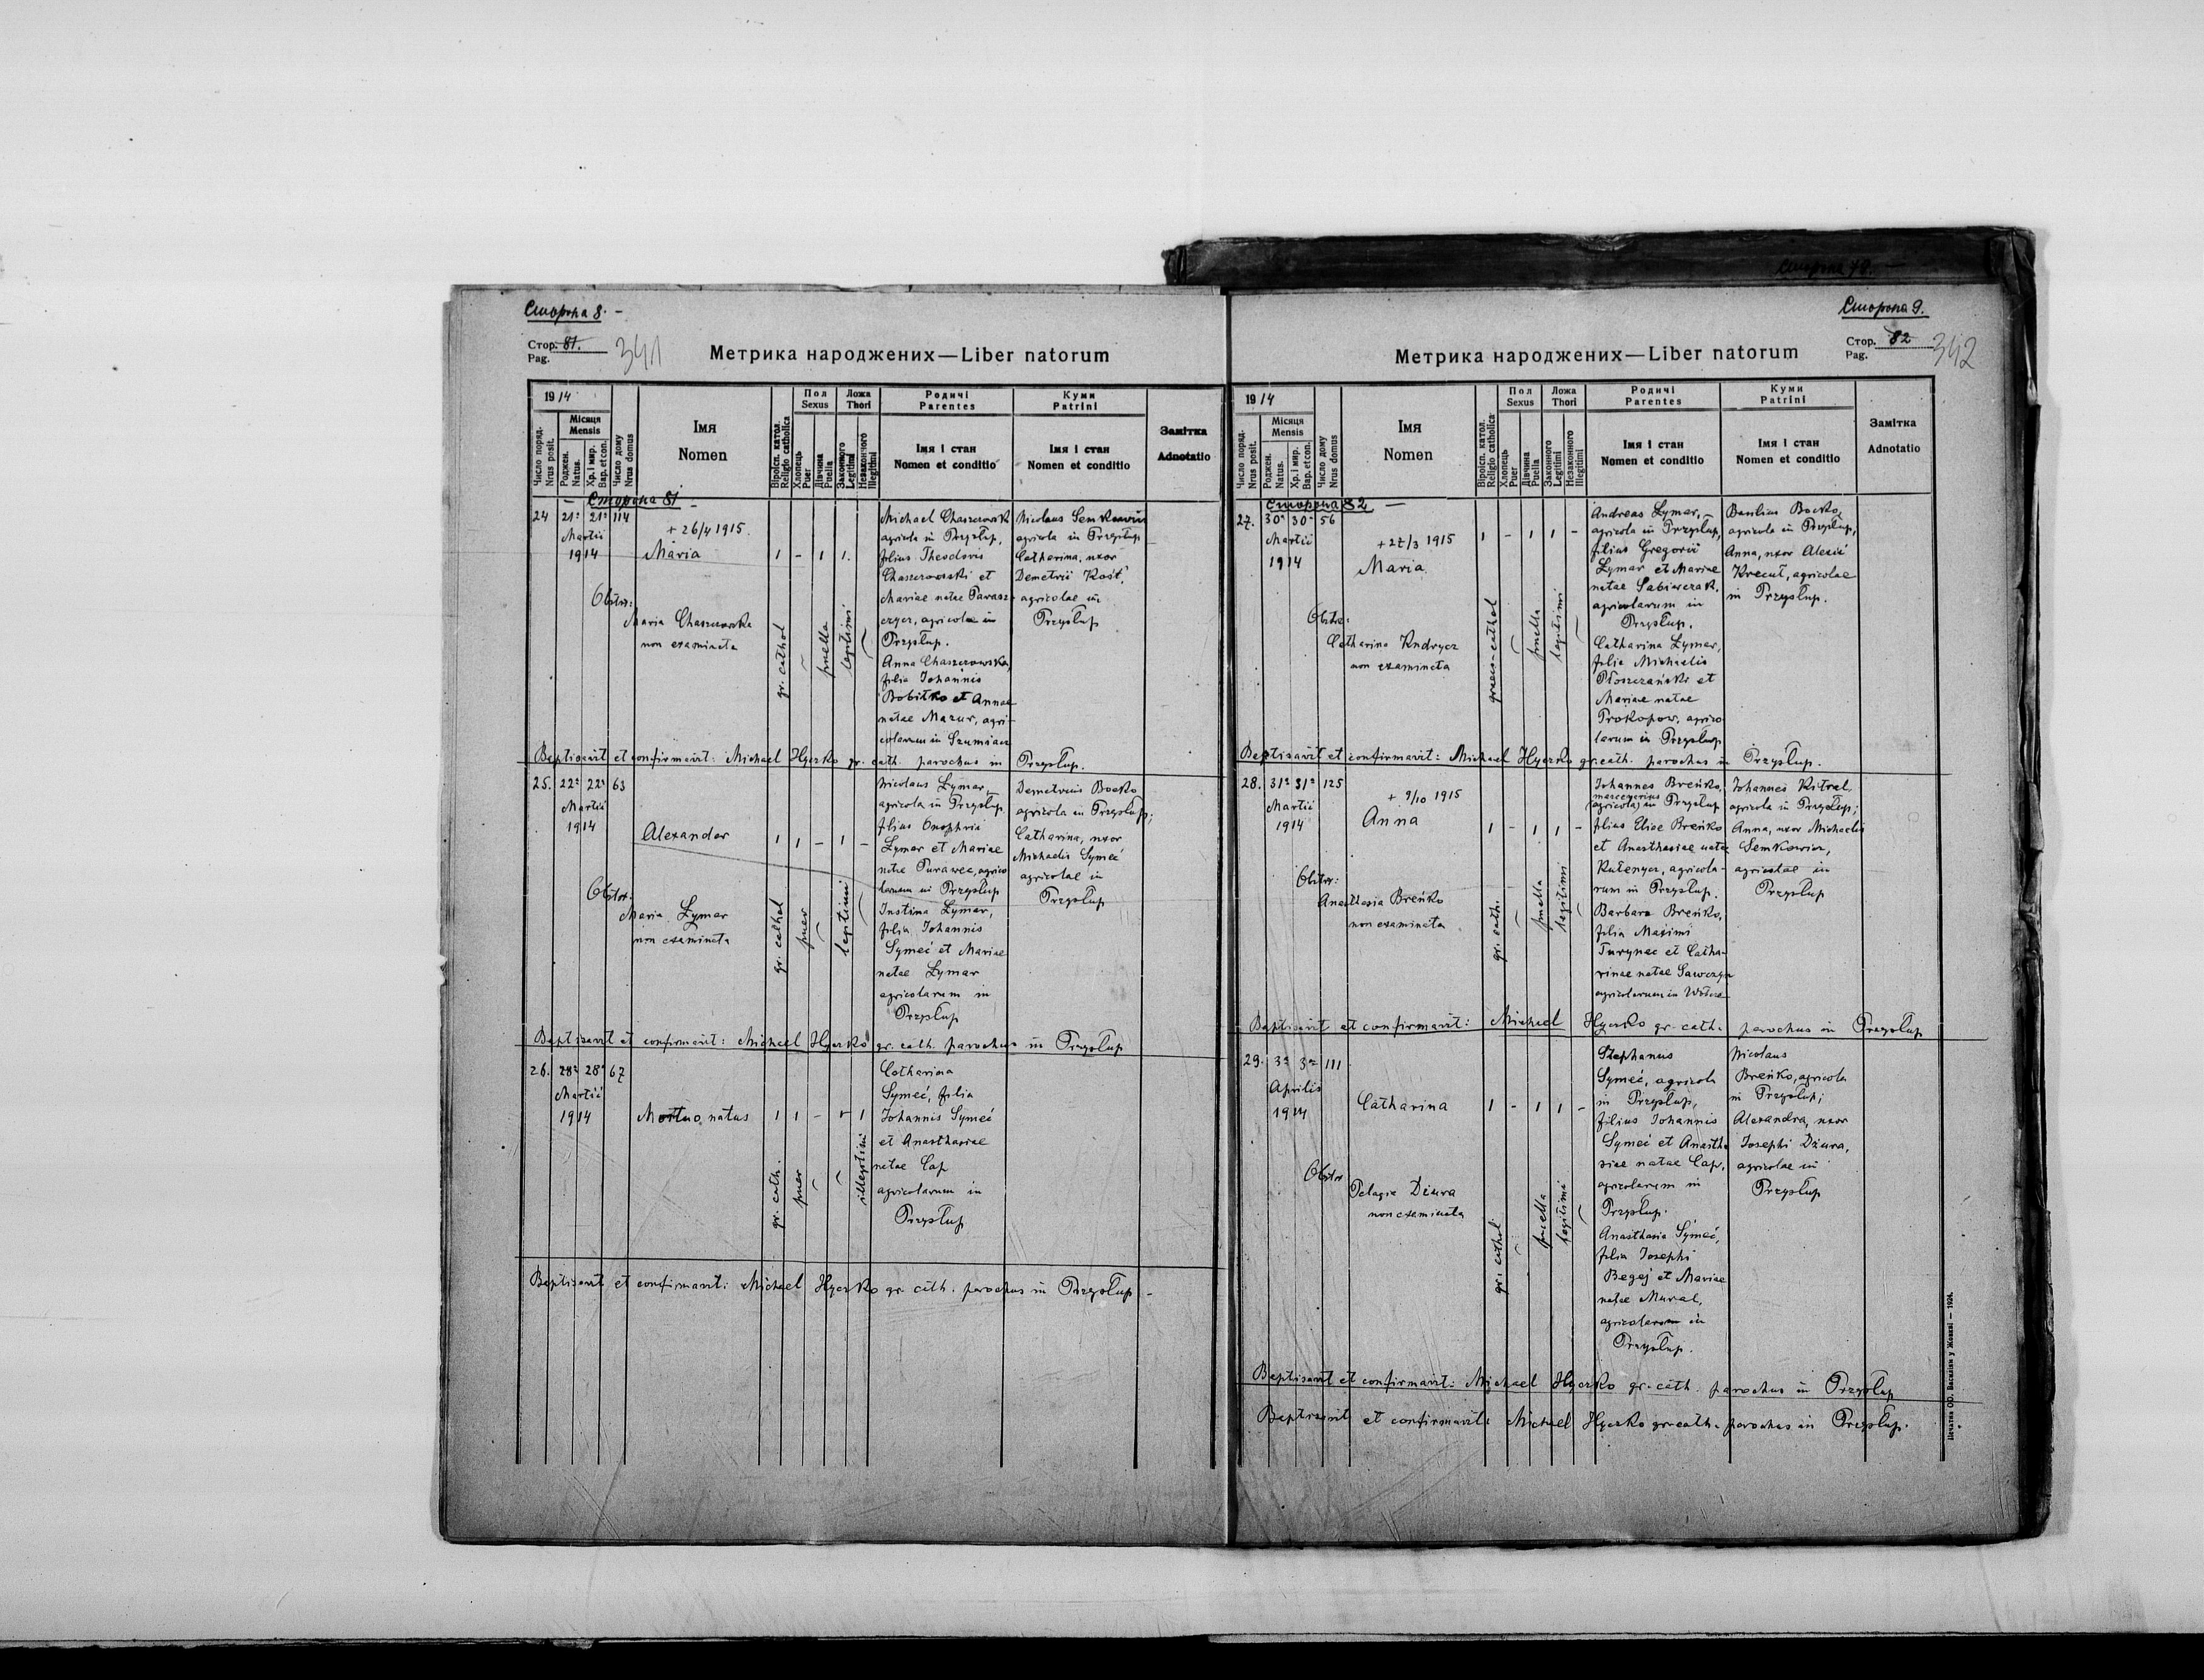 Сторона 8. -
Стор. 81.
Pag.
341
Метрика народжених—Liber natorum
1914
Число поряд.
Nrus posit.
Місяця
Mensis
Роджен.
Natus.
Хр. і мир.
Bap. et con.
Число дому
Nrus domus
Імя
Nomen
Віроісп. катол.
Religio catholica
Пол
Sexus
Хлопець
Puer
Дівчина
Puella
Ложа
Thori
Законного
Legitimi
Незаконного
Illegitimi
Родичі
Parentes
Імя і стан
Nomen et conditio
Куми
Patrini
Імя і стан
Nomen et conditio
Замітка
Adnotatio
- Сторона 81 -
24 21ª 21ª 114
Martii
1914
+ 26/4 1915.
Maria
1 - 1 1.
Obstetr:
Maria Chaszczowska
non examinata
gr. cathol
puella
legitimi
Michael Chaszczowski
agricola in Przysłup,
filius Theodoris
Chaszczowski et
Mariae natae Parasz-
czycz, agricolae in
Przysłup.
Anna Chaszczowska,
filia Johannis
Bobitko et Annae
natae Mazur, agri-
colarum in Szumiacz
Nicolaus Semkowicz
agricola in Przysłup
Catharina, uxor
Demetrii Kość,
agricolae in
Przysłup
Baptisavit et confirmavit: Michael Hyczko gr. cath. parochus in Przysłup.
25. 22ª 22ª 63
Martii
1914
Alexander
1 1 - 1 -
Obstetr:
Maria Łymar
non examinata
gr. cathol
puer
legitimi
Nicolaus Łymar,
agricola in Przysłup
filius Onophrii
Łymar et Mariae
natae Purawec, agrico
larum in Przysłup
Justina Łymar,
filia Johannis
Symeć et Mariae
natae Łymar
agricolarum in
Przysłup
Demetrius Bocko
agricola in Przysłup;
Catharina, uxor
Michaelis Symeć
agricolae in
Przysłup
Baptisavit et confirmavit: Michael Hyczko gr. cath. parochus in Przysłup
26. 28ª 28ª 67
Martii
1914
Mortuo natus
1 1 - - 1
gr. cath.
puer
illegitimi
Catharina
Symeć, filia
Johannis Symeć
et Anasthasiae
natae Cap
agricolarum in
Przysłup
Baptisavit et confirmavit: Michael Hyczko gr. cath. parochus in Przysłup -
Сторона 9.
Стор. 82
Pag.
342
Метрика народжених—Liber natorum
1914
Число поряд.
Nrus posit.
Місяця
Mensis
Роджен.
Natus.
Хр. і мир.
Bap. et con.
Число дому
Nrus domus
Імя
Nomen
Віроісп. катол.
Religio catholica
Пол
Sexus
Хлопець
Puer
Дівчина
Puella
Ложа
Thori
Законного
Legitimi
Незаконного
Illegitimi
Родичі
Parentes
Імя і стан
Nomen et conditio
Куми
Patrini
Імя і стан
Nomen et conditio
Замітка
Adnotatio
Сторона 82 -
27. 30ª 30ª 56
Martii
1914
+ 27/3 1915
Maria
1 - 1 1 -
Obstetr:
Catharina Kudrycz
non examinata
graeco-cathol
puella
legitimi
Andreas Łymar, -
agricola in Przysłup,
filius Gregorii
Łymar et Mariae
natae Sabiwczak,
agricolarum in
Przysłup.
Catharina Łymar,
filia Michaelis
Płoszczański et
Mariae natae
Prokopow, agrico
larum in Przysłup
Basilius Bocko,
agricola in Przysłup,
Anna, uxor Alexii
Krecuł, agricolae
in Przysłup.
Baptisavit et confirmavit: Michael Hyczko gr. cath. parochus in Przysłup.
28. 31ª 31ª 125
Martii
1914
+ 9/10 1915
Anna
1 - 1 1 -
Obstetr:
Anasthasia Breńko
non examinata
gr. cath.
puella
legitimi
Johannes Breńko,
mercenarius
(agricola) in Przysłup
filius Eliae Breńko
et Anasthasiae natae
Kułenycz, agricola-
rum in Przysłup.
Barbara Breńko,
filia Maximi
Turynec et Catha-
rinae natae Sawczyn
agricolarum in Wołcze
Johannes Kitral,
agricola in Przysłup;
Anna, uxor Michaelis
Semkowicz,
agricolae in
Przysłup
Baptisavit et confirmavit: Michael Hyczko gr. cath. parochus in Przysłup
29. 3ª 3ª 111
Aprilis
1914
Catharina
1 - 1 1 -
Obstetr
Pelagia Dżura
non examinata
gr. cathol
puella
legitimi
Stephanus
Symeć, agricola
in Przysłup,
filius Johannis
Symeć et Anastha
siae natae Cap,
agricolarum in
Przysłup.
Anasthasia Symeć,
filia Josephi
Begej et Mariae
natae Mural,
agricolarum in
Przysłup.
Nicolaus
Breńko, agricola
in Przysłup;
Alexandra, uxor
Josephi Dżura,
agricolae in
Przysłup
Baptisavit et confirmavit: Michael Hyczko gr. cath. parochus in Przysłup
Baptisavit et confirmavit: Michael Hyczko gr. cath. parochus in Przysłup.
Печатня ОО. Василіян у Жовкві — 1924.